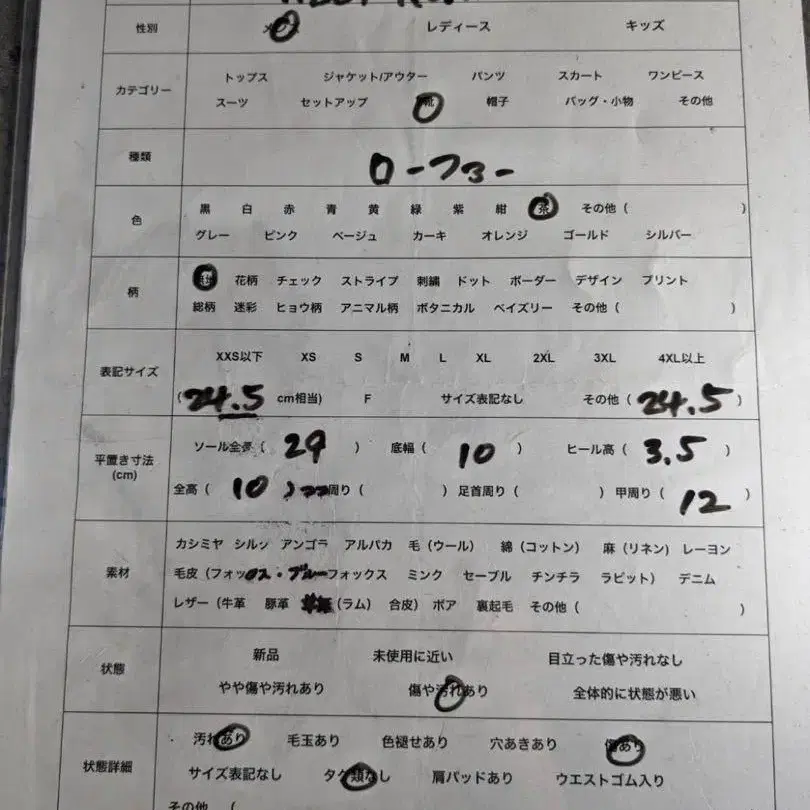 性別 メンズ レディース キッズ
トップス ジャケット/アウター パンツ スカート ワンピース
カテゴリー
スーツ セットアップ 靴 帽子 バッグ・小物 その他
種類 ローファー
黒 白 赤 青 黄 緑 紫 紺 茶 その他 ( )
色
グレー ピンク ベージュ カーキ オレンジ ゴールド シルバー
花柄 チェック ストライプ 刺繍 ドット ボーダー デザイン プリント
柄
総柄 迷彩 ヒョウ柄 アニマル柄 ボタニカル ペイズリー その他 ( )
XXS以下 XS S M L XL 2XL 3XL 4XL以上
表記サイズ
(24.5 cm相当) F サイズ表記なし その他 (24.5)
ソール全長 ( 29 ) 底幅 ( 10 ) ヒール高 ( 3.5 )
平置き寸法
(cm)
全高 ( 10 ) 周り ( ) 足首周り ( ) 甲周り ( 12 )
カシミヤ シルク アンゴラ アルパカ 毛 (ウール) 綿 (コットン) 麻 (リネン) レーヨン
素材
毛皮 (フォックス・ブルーフォックス ミンク セーブル チンチラ ラビット) デニム
レザー (牛革 豚革 (ラム) 合皮) ボア 裏起毛 その他 ( )
新品 未使用に近い 目立った傷や汚れなし
状態
やや傷や汚れあり 傷や汚れあり 全体的に状態が悪い
汚れあり 毛玉あり 色褪せあり 穴あきあり 傷あり
状態詳細
サイズ表記なし タグ類なし 肩パッドあり ウエストゴム入り
その他 (